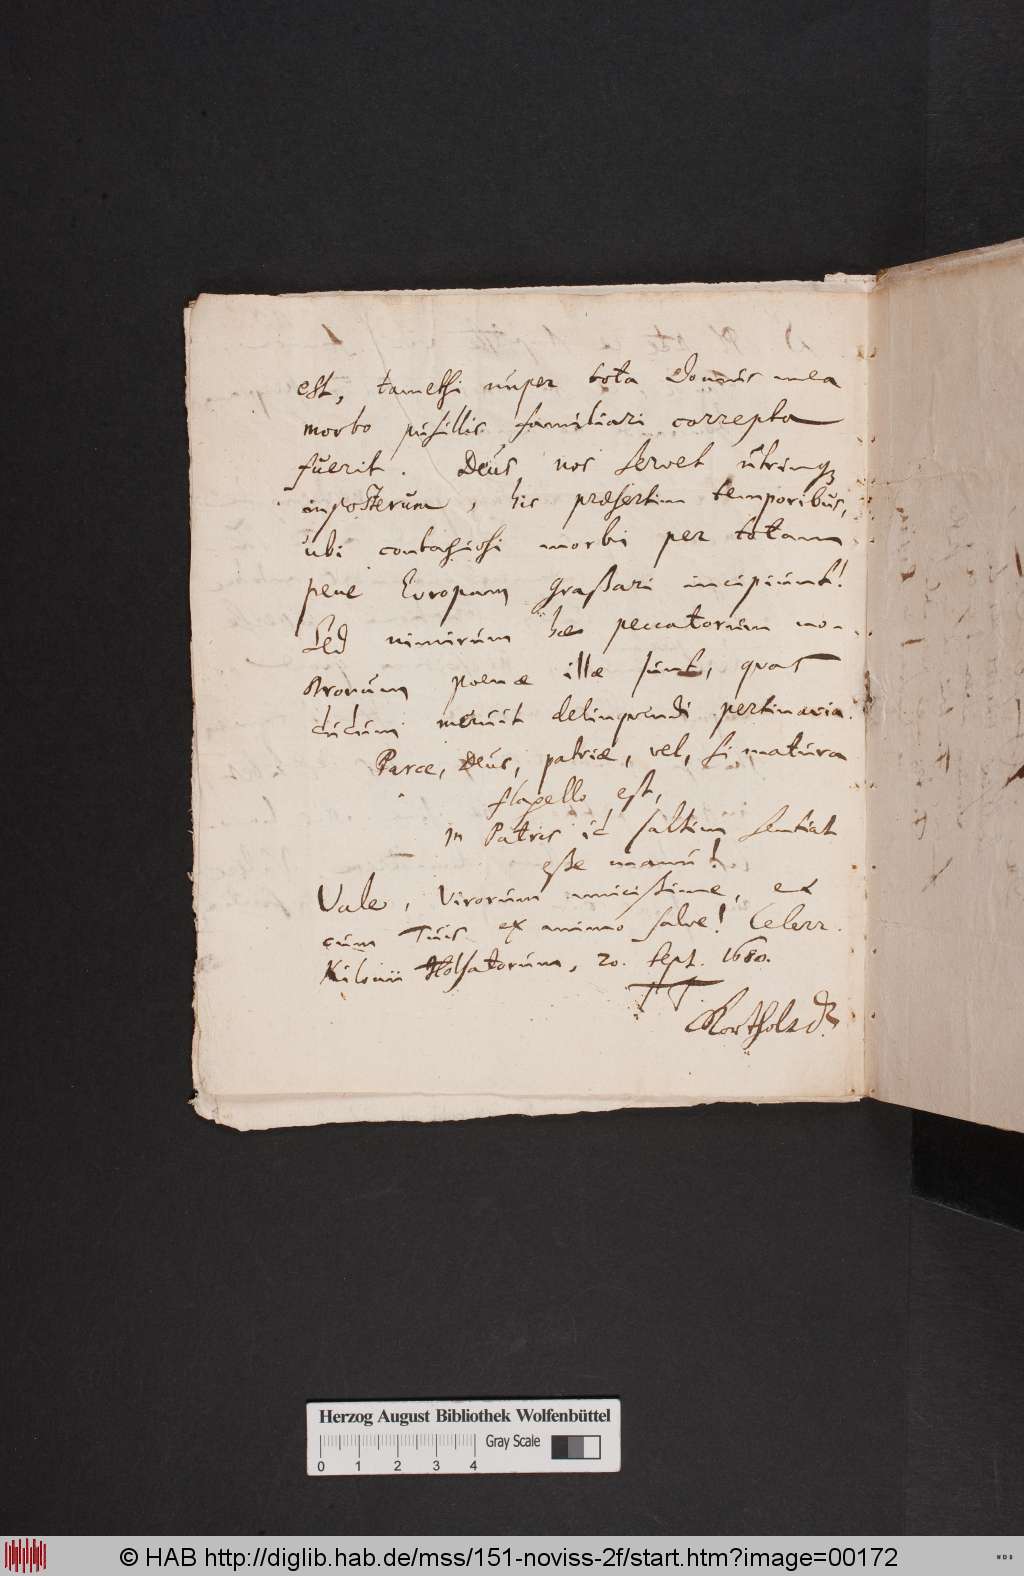 est, tametsi nuper tota Domus mea
morbo pusillis familiari correpta
fuerit. Deus nos servet utrinq;
inposterum, his præsertim temporibus,
ubi contagiosi morbi per totam
pene Europam graßari incipiunt!
Sed nimirum hæ peccatorum no-
strorum poenæ illæ sunt, quas
dudum meruit delinquendi pertinacia.
Parce, Deus, patriæ, vel, si matura
flagello est,
in Patris id saltim sentiat
eße manu!
Vale, Virorum amicißime, et
cum Tuis ex animo salve! Celerr.
Kilonii Holsatorum, 20. Sept. 1680.
TT
Kortholt D.
Herzog August Bibliothek Wolfenbüttel
Gray Scale
0 1 2 3 4
© HAB http://diglib.hab.de/mss/151-noviss-2f/start.htm?image=00172